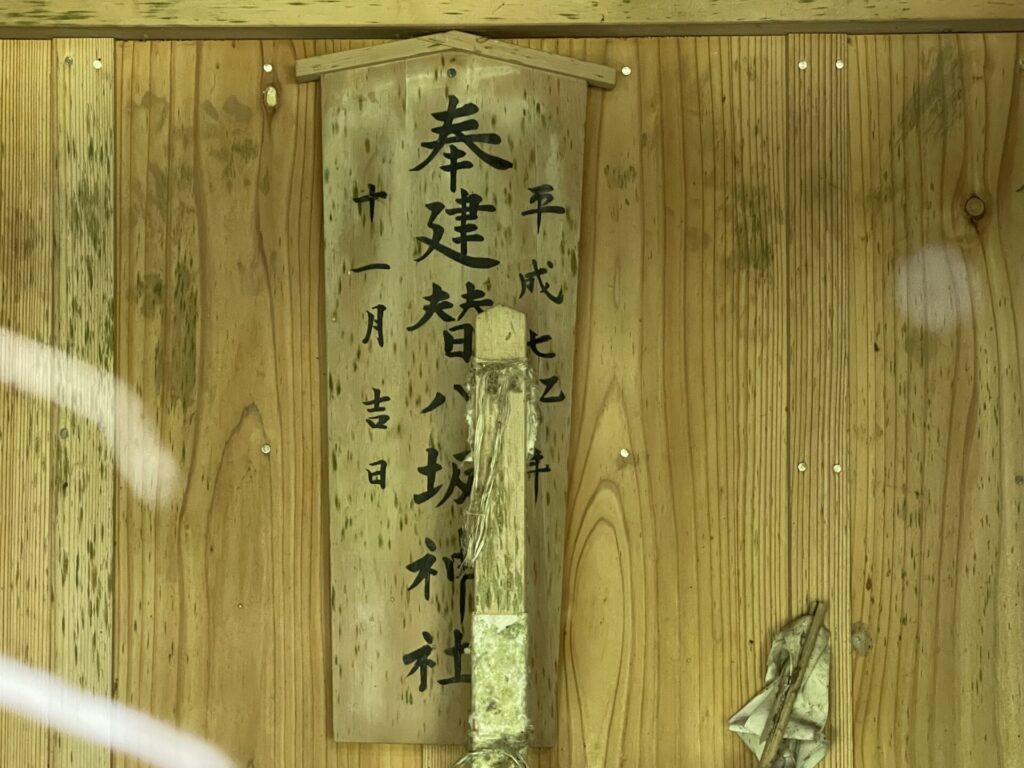 平成七乙年
奉建替八坂神社
十一月吉日